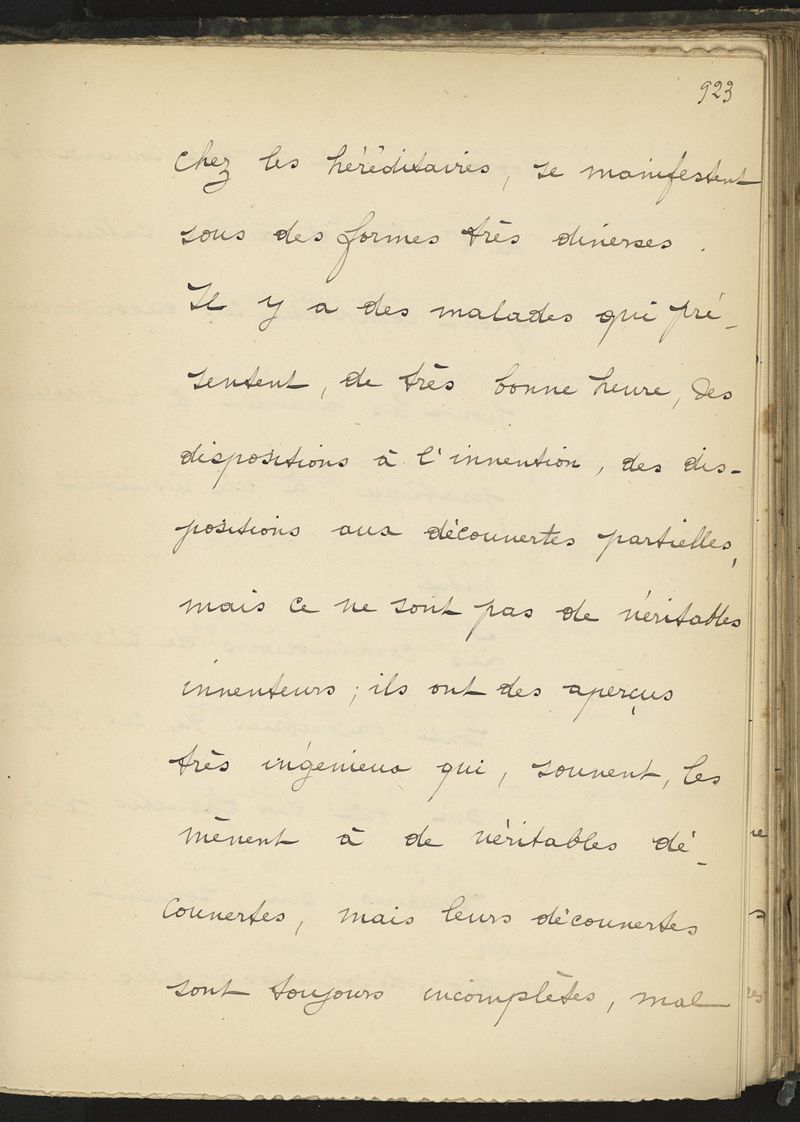 923
Chez les héréditaires, se manifestent
sous des formes très diverses.
Il y a des malades qui pré-
sentent, de très bonne heure, des
dispositions à l'invention, des dis-
positions aux découvertes partielles,
mais ce ne sont pas de véritables
inventeurs ; ils ont des aperçus
très ingénieux qui, souvent, les
mènent à de véritables dé-
couvertes, mais leurs découvertes
sont toujours incomplètes, mal